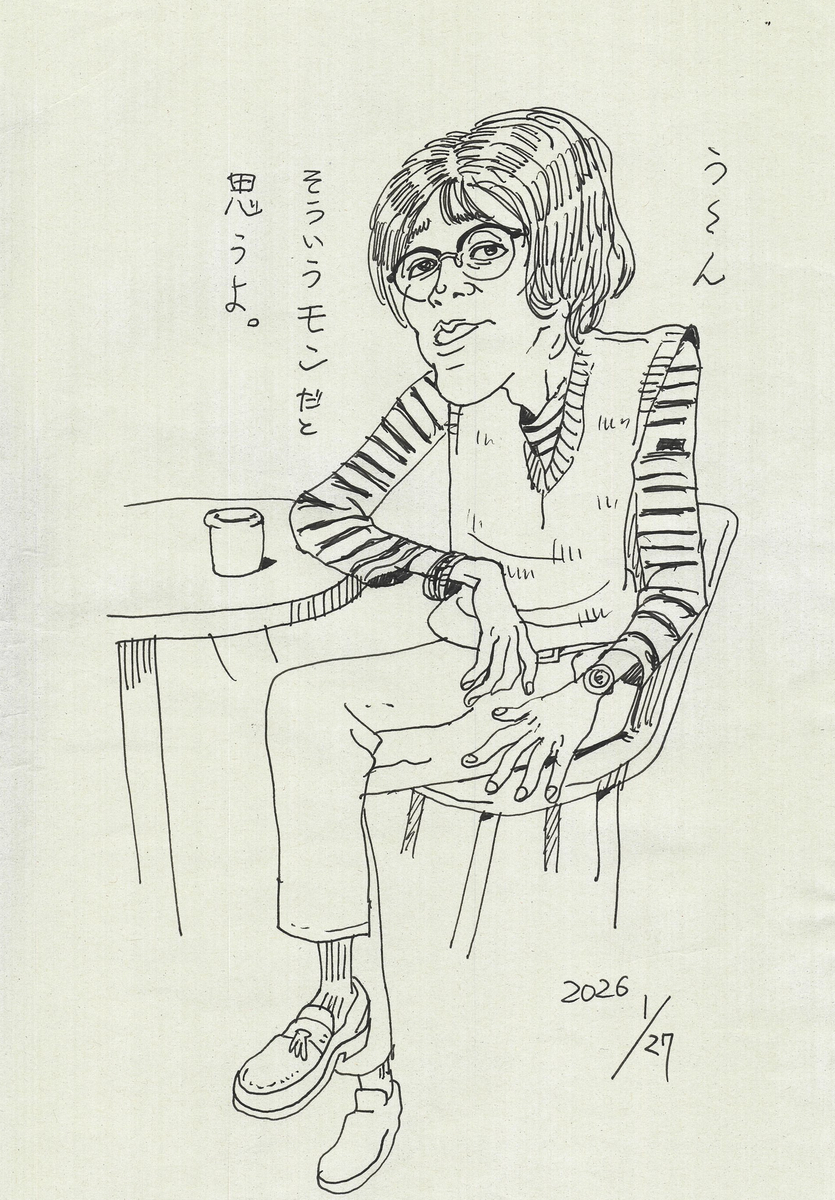 う〜ん
そういうモンだと
思うよ。
2026
1/27